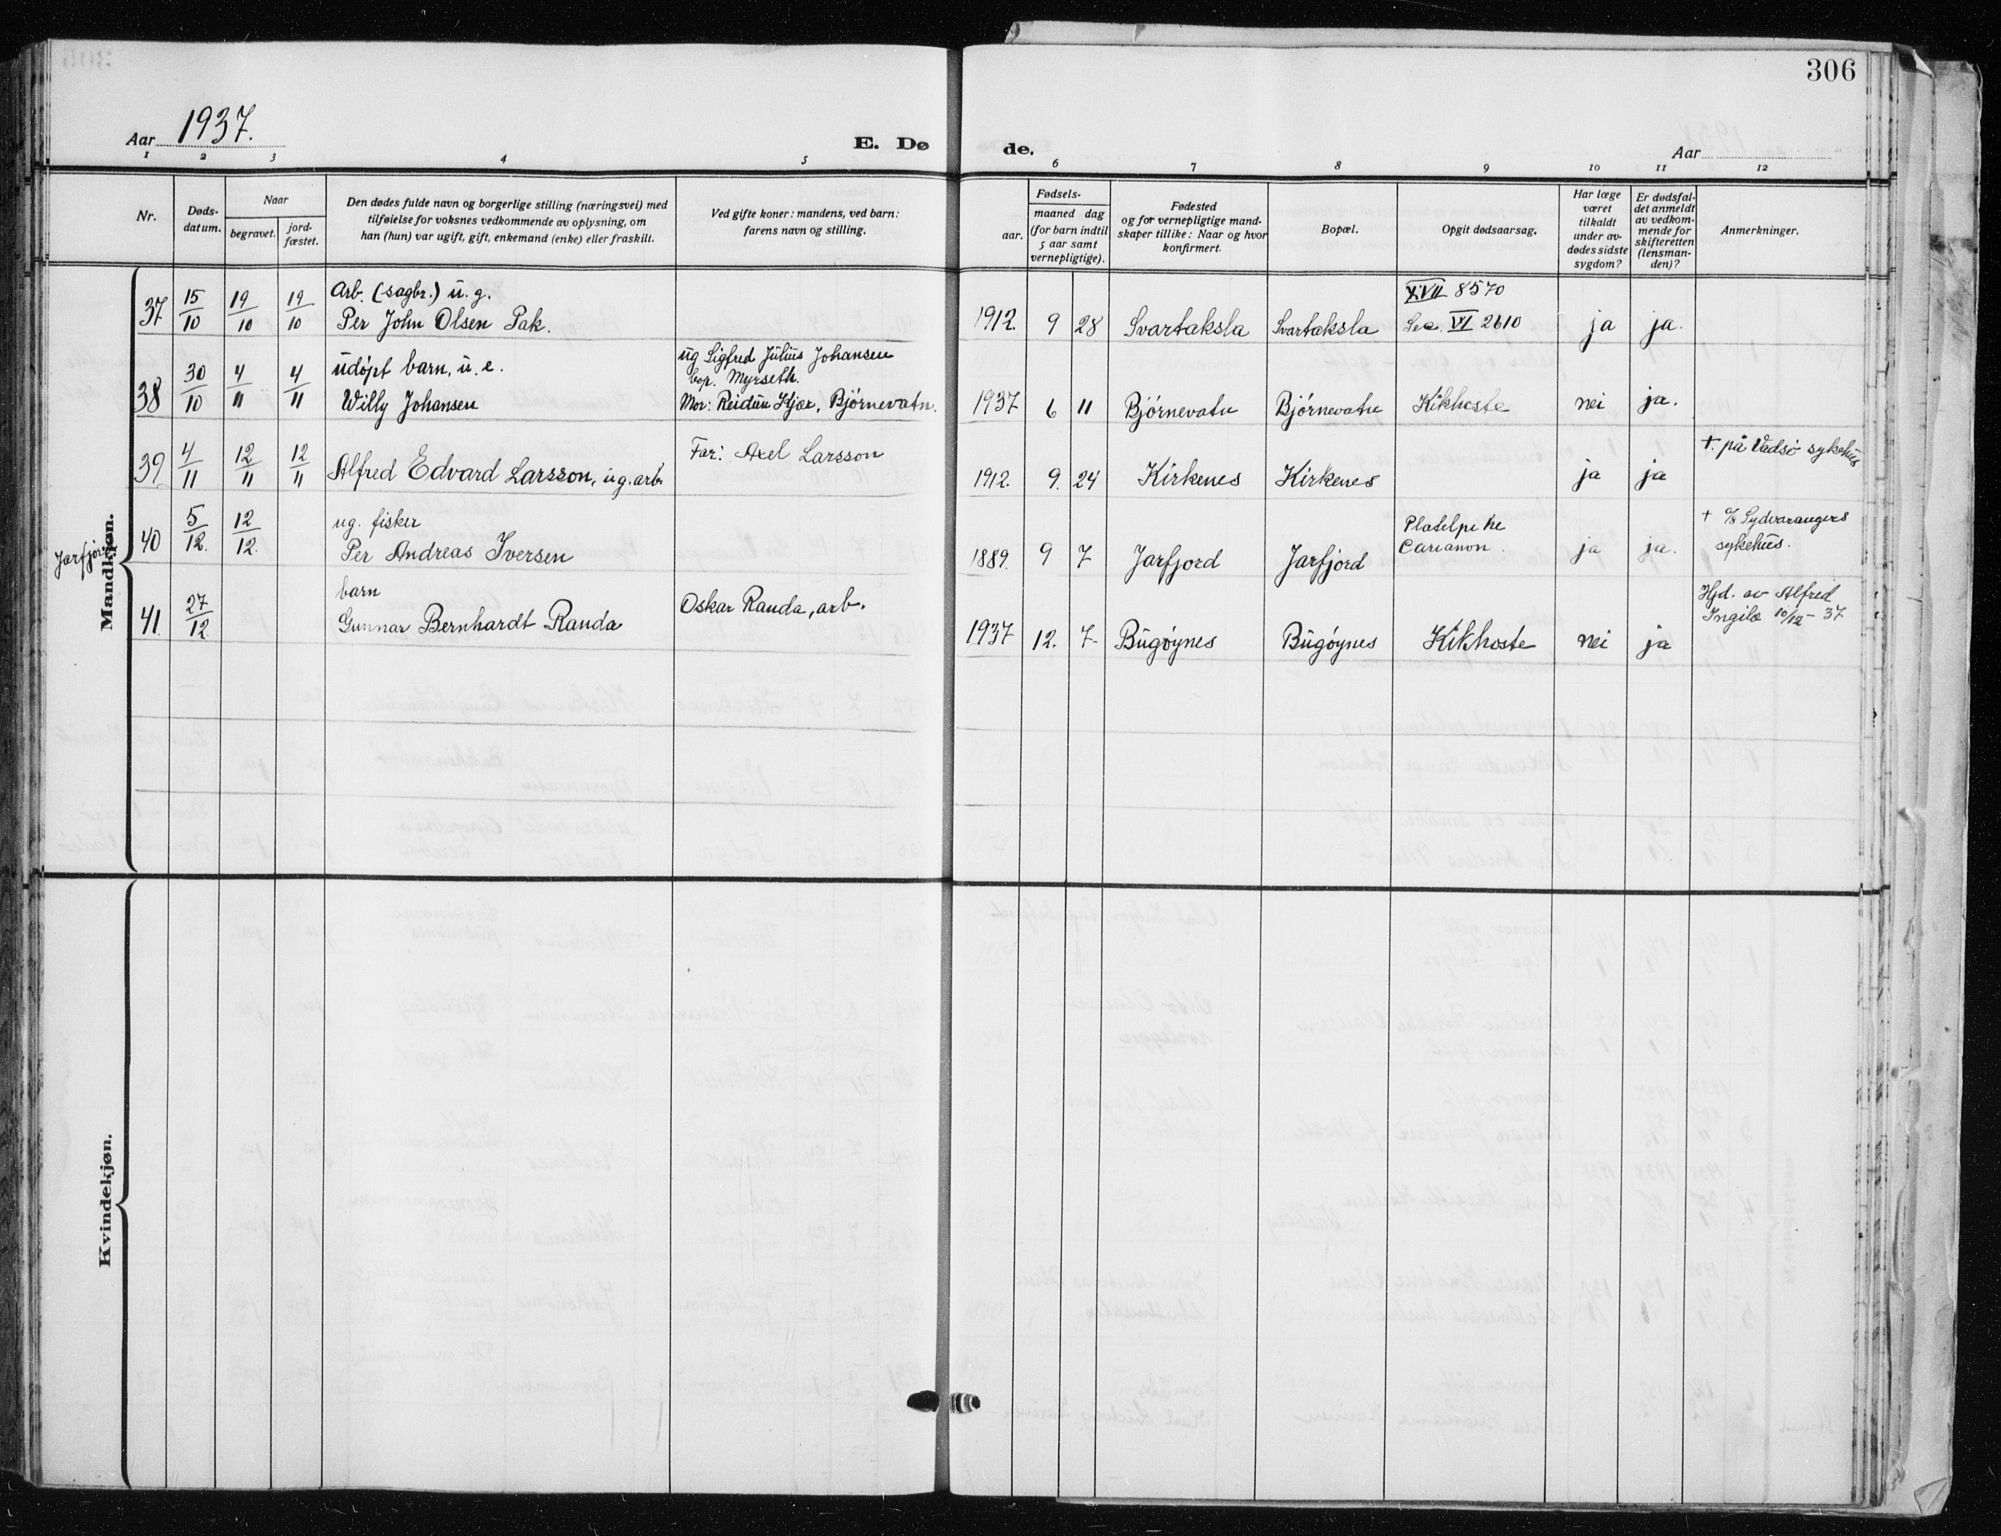 306
Aar 1937.
E. Dø
de.
Aar
1 2 3 4 5 6 7 8 9 10 11 12
Nr.
Døds-
datum.
Naar
begravet.
jord-
fæstet.
Den dødes fulde navn og borgerlige stilling (næringsvei) med
tilføielse for voksnes vedkommende av oplysning, om
han (hun) var ugift, gift, enkemand (enke) eller fraskilt.
Ved gifte koner: mandens, ved barn:
farens navn og stilling.
Fødsels-
aar.
maaned dag
(for barn indtil
5 aar samt
vernepligtige).
Fødested
og for vernepligtige mand-
skaper tillike: Naar og hvor
konfirmert.
Bopæl.
Opgit dødsaarsag.
Har læge
været
tilkaldt
under av-
dødes sidste
sygdom?
Er dødsfal-
det anmeldt
av vedkom-
mende for
skifteretten
(lensman-
den)?
Anmerkninger.
Mandkjøn.
37 15/10 19/10 19/10
Arb. (sagbr.) u.g.
Per John Olsen Pak.
1912. 9 28 Svartaksla Svartaksla
XVII 8570
Sec. VI 2610
ja ja.
38 30/10 4/11 4/11
udøpt barn, u.e.
Willy Johansen
ug Sigfred Julius Johansen
bop. Myrseth.
Mor: Reidun Kjær, Bjørnevatn.
1937 6 11 Bjørnevatn Bjørnevatn Kikhoste nei ja.
39 4/11 12/11 12/11
Alfred Edvard Larsson, ug. arb.
Far: Axel Larsson
1912. 9. 24 Kirkenes Kirkenes ja ja
+ på Vadsø sykehus
Jarfjord
40 5/12. 12/12.
ug. fisker
Per Andreas Iversen
1889. 9 7 Jarfjord Jarfjord
ja ja.
+ Sydvarangers
sykehus.
41. 27/12.
barn
Gunnar Bernhardt Randa
Oskar Randa, arb.
1937 12. 7. Bugøynes Bugøynes Kikhoste nei ja
Hjd. av Alfred
Ingilæ 10/12-37
Kvindekjøn.